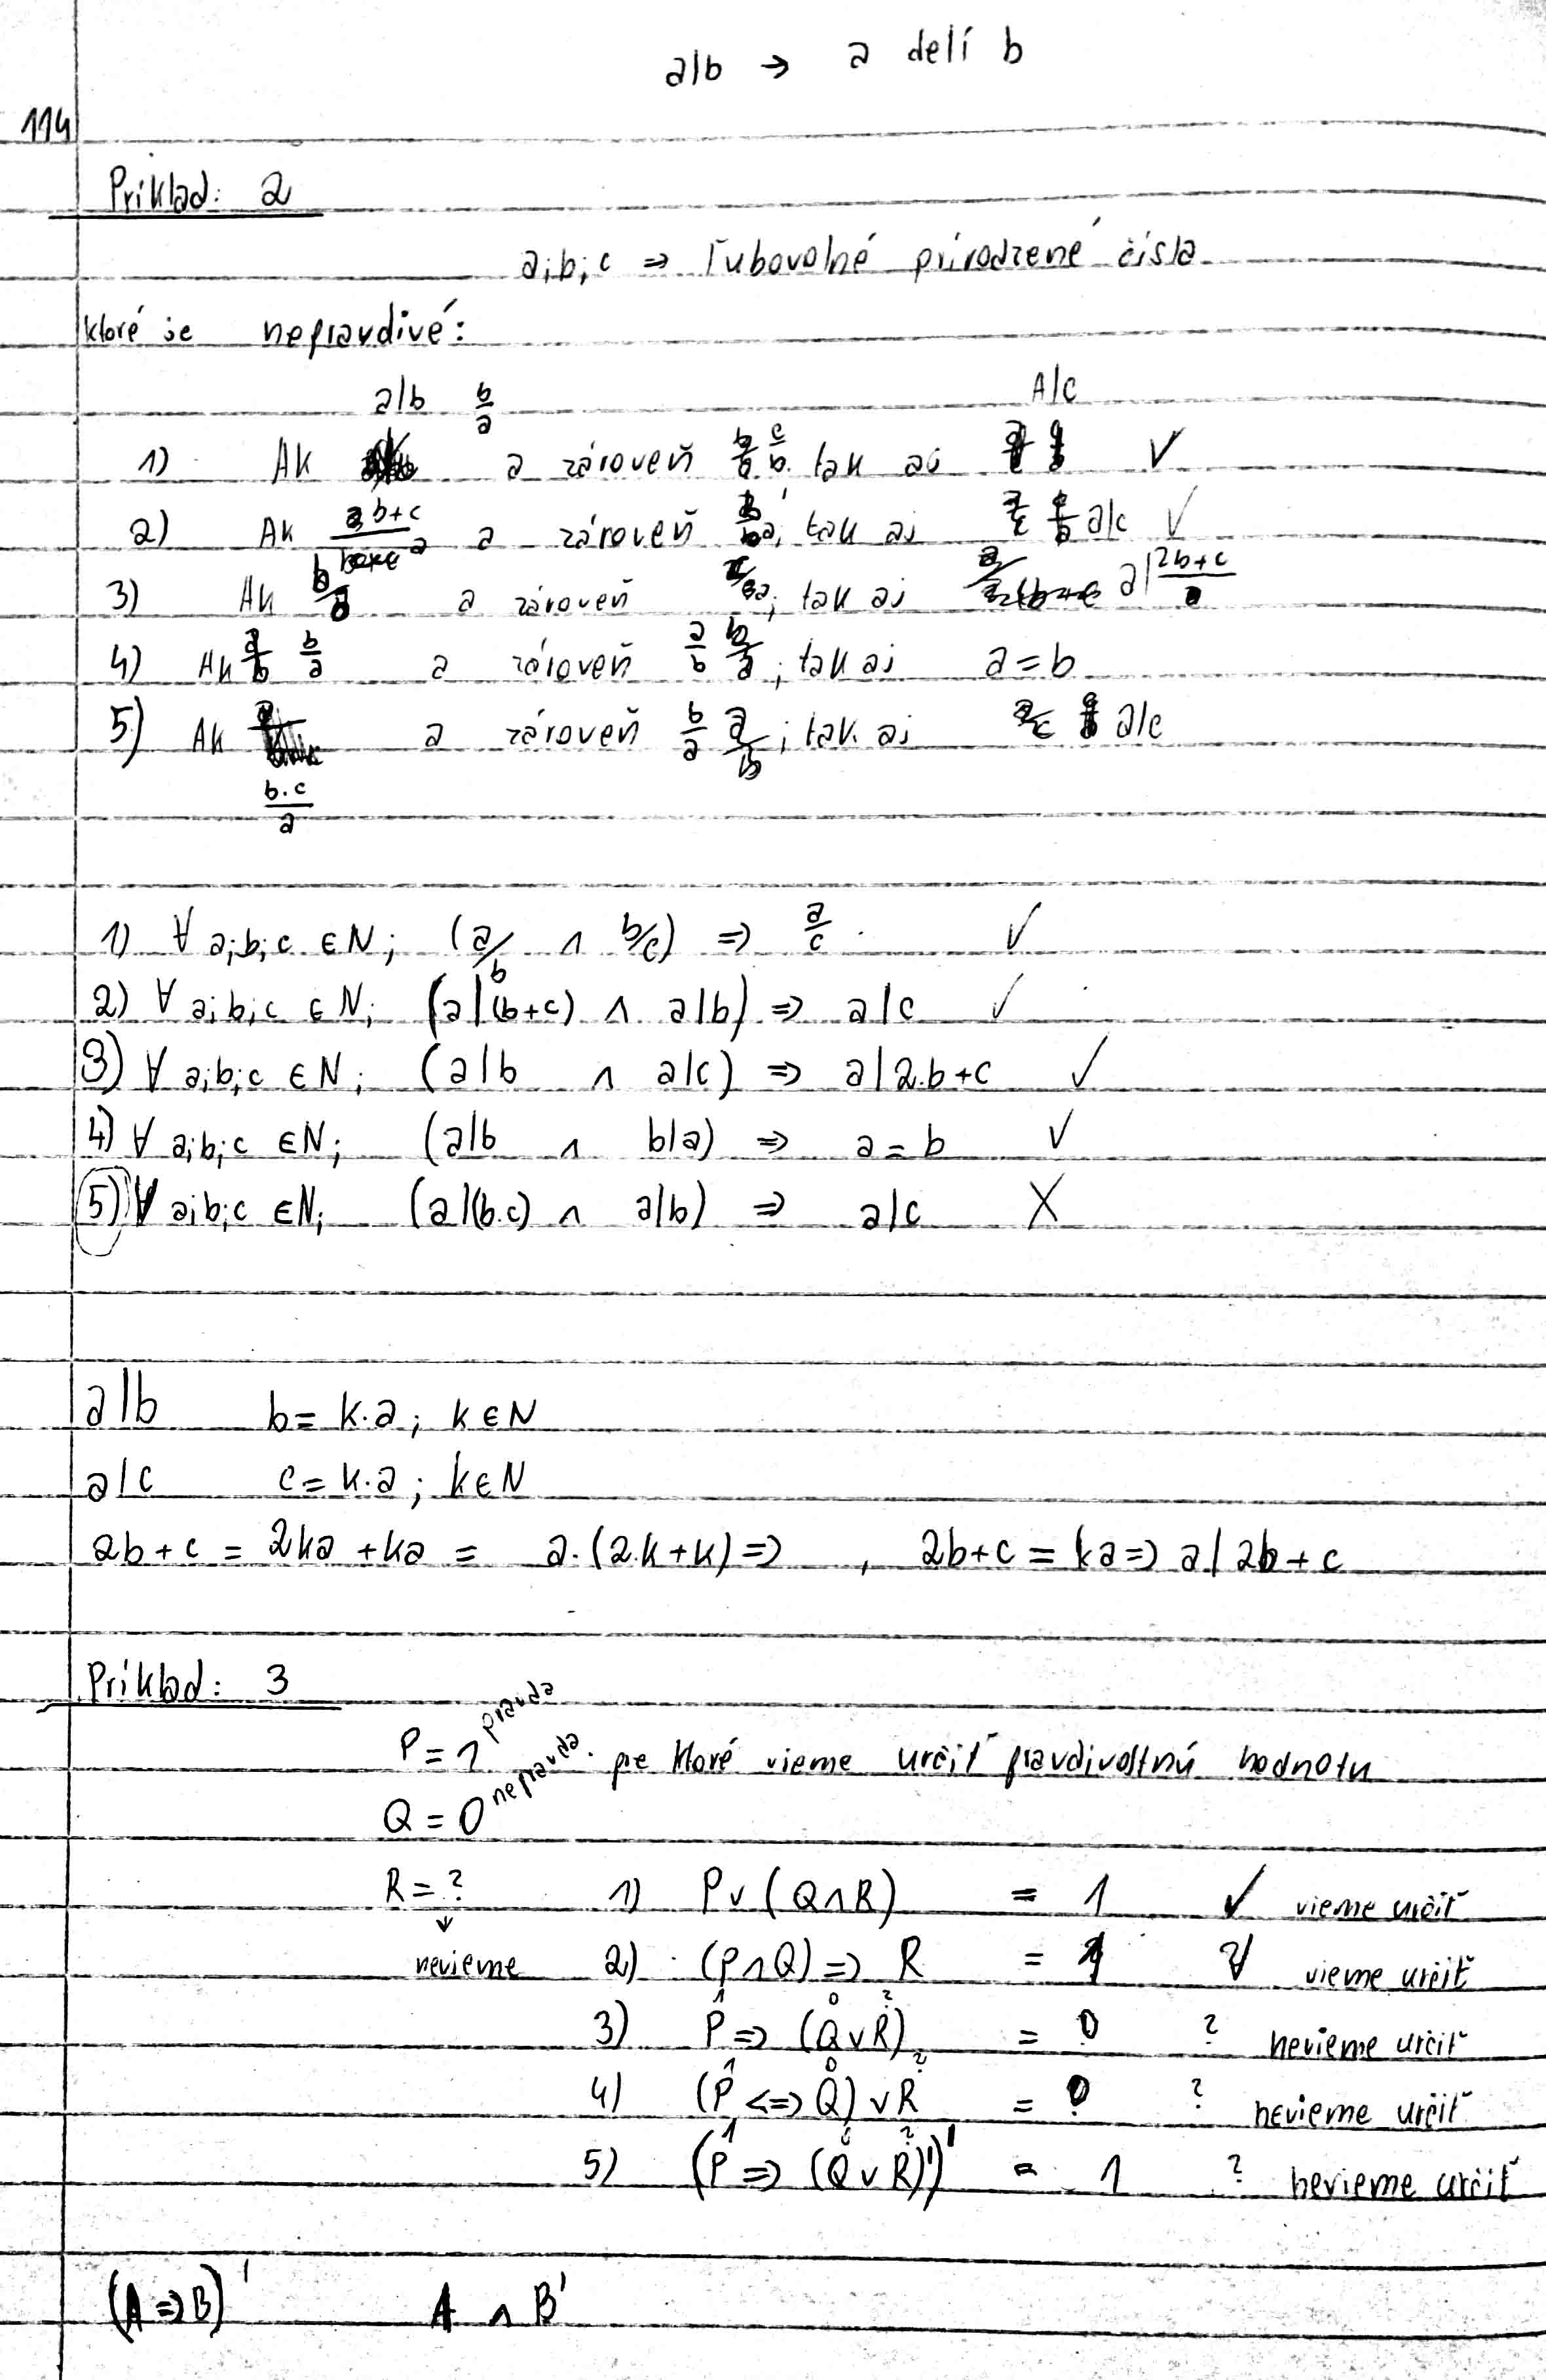 a|b → a delí b
114
Príklad: 2
a;b;c ⇒ ľubovolné prirodzené čísla
ktoré je nepravdivé:
a|b b/a A|c
1) Ak a zároveň b/a c/b tak aj ✓
2) Ak b+c/a a zároveň tak aj a|c ✓
3) Ak b/a a zároveň ; tak aj a|2b+c
4) Ak a/b b/a a zároveň a/b b/a ; tak aj a=b
5) Ak a zároveň b/a a/b ; tak aj a|c
b·c/a
1) ∀ a;b;c ∈N; (a/b ∧ b/c) ⇒ a/c ✓
2) ∀ a;b;c ∈N; (a|(b+c) ∧ a|b) ⇒ a|c ✓
3) ∀ a;b;c ∈N; (a|b ∧ a|c) ⇒ a|2.b+c ✓
4) ∀ a;b;c ∈N; (a|b ∧ b|a) ⇒ a=b ✓
5) ∀ a;b;c ∈N; (a|(b.c) ∧ a|b) ⇒ a|c X
a|b b=k.a; k∈N
a|c c=k.a; k∈N
2b+c = 2ka+ka = a.(2.k+k)⇒ , 2b+c = ka⇒ a|2b+c
Príklad: 3
P=1 pravda
Q=0 nepravda. pre ktoré vieme určiť pravdivostnú hodnotu
R=? 1) P∨(Q∧R) = 1 ✓ vieme určiť
↓
nevieme 2) (P∧Q)⇒R = 1 vieme určiť
1 0 ?
3) P⇒(Q∨R) = 0 ? nevieme určiť
1 0 ?
4) (P<=>Q)∨R = ? nevieme určiť
1 0 ?
5) (P⇒(Q∨R)')' = 1 ? nevieme určiť
(A⇒B)' A∧B'